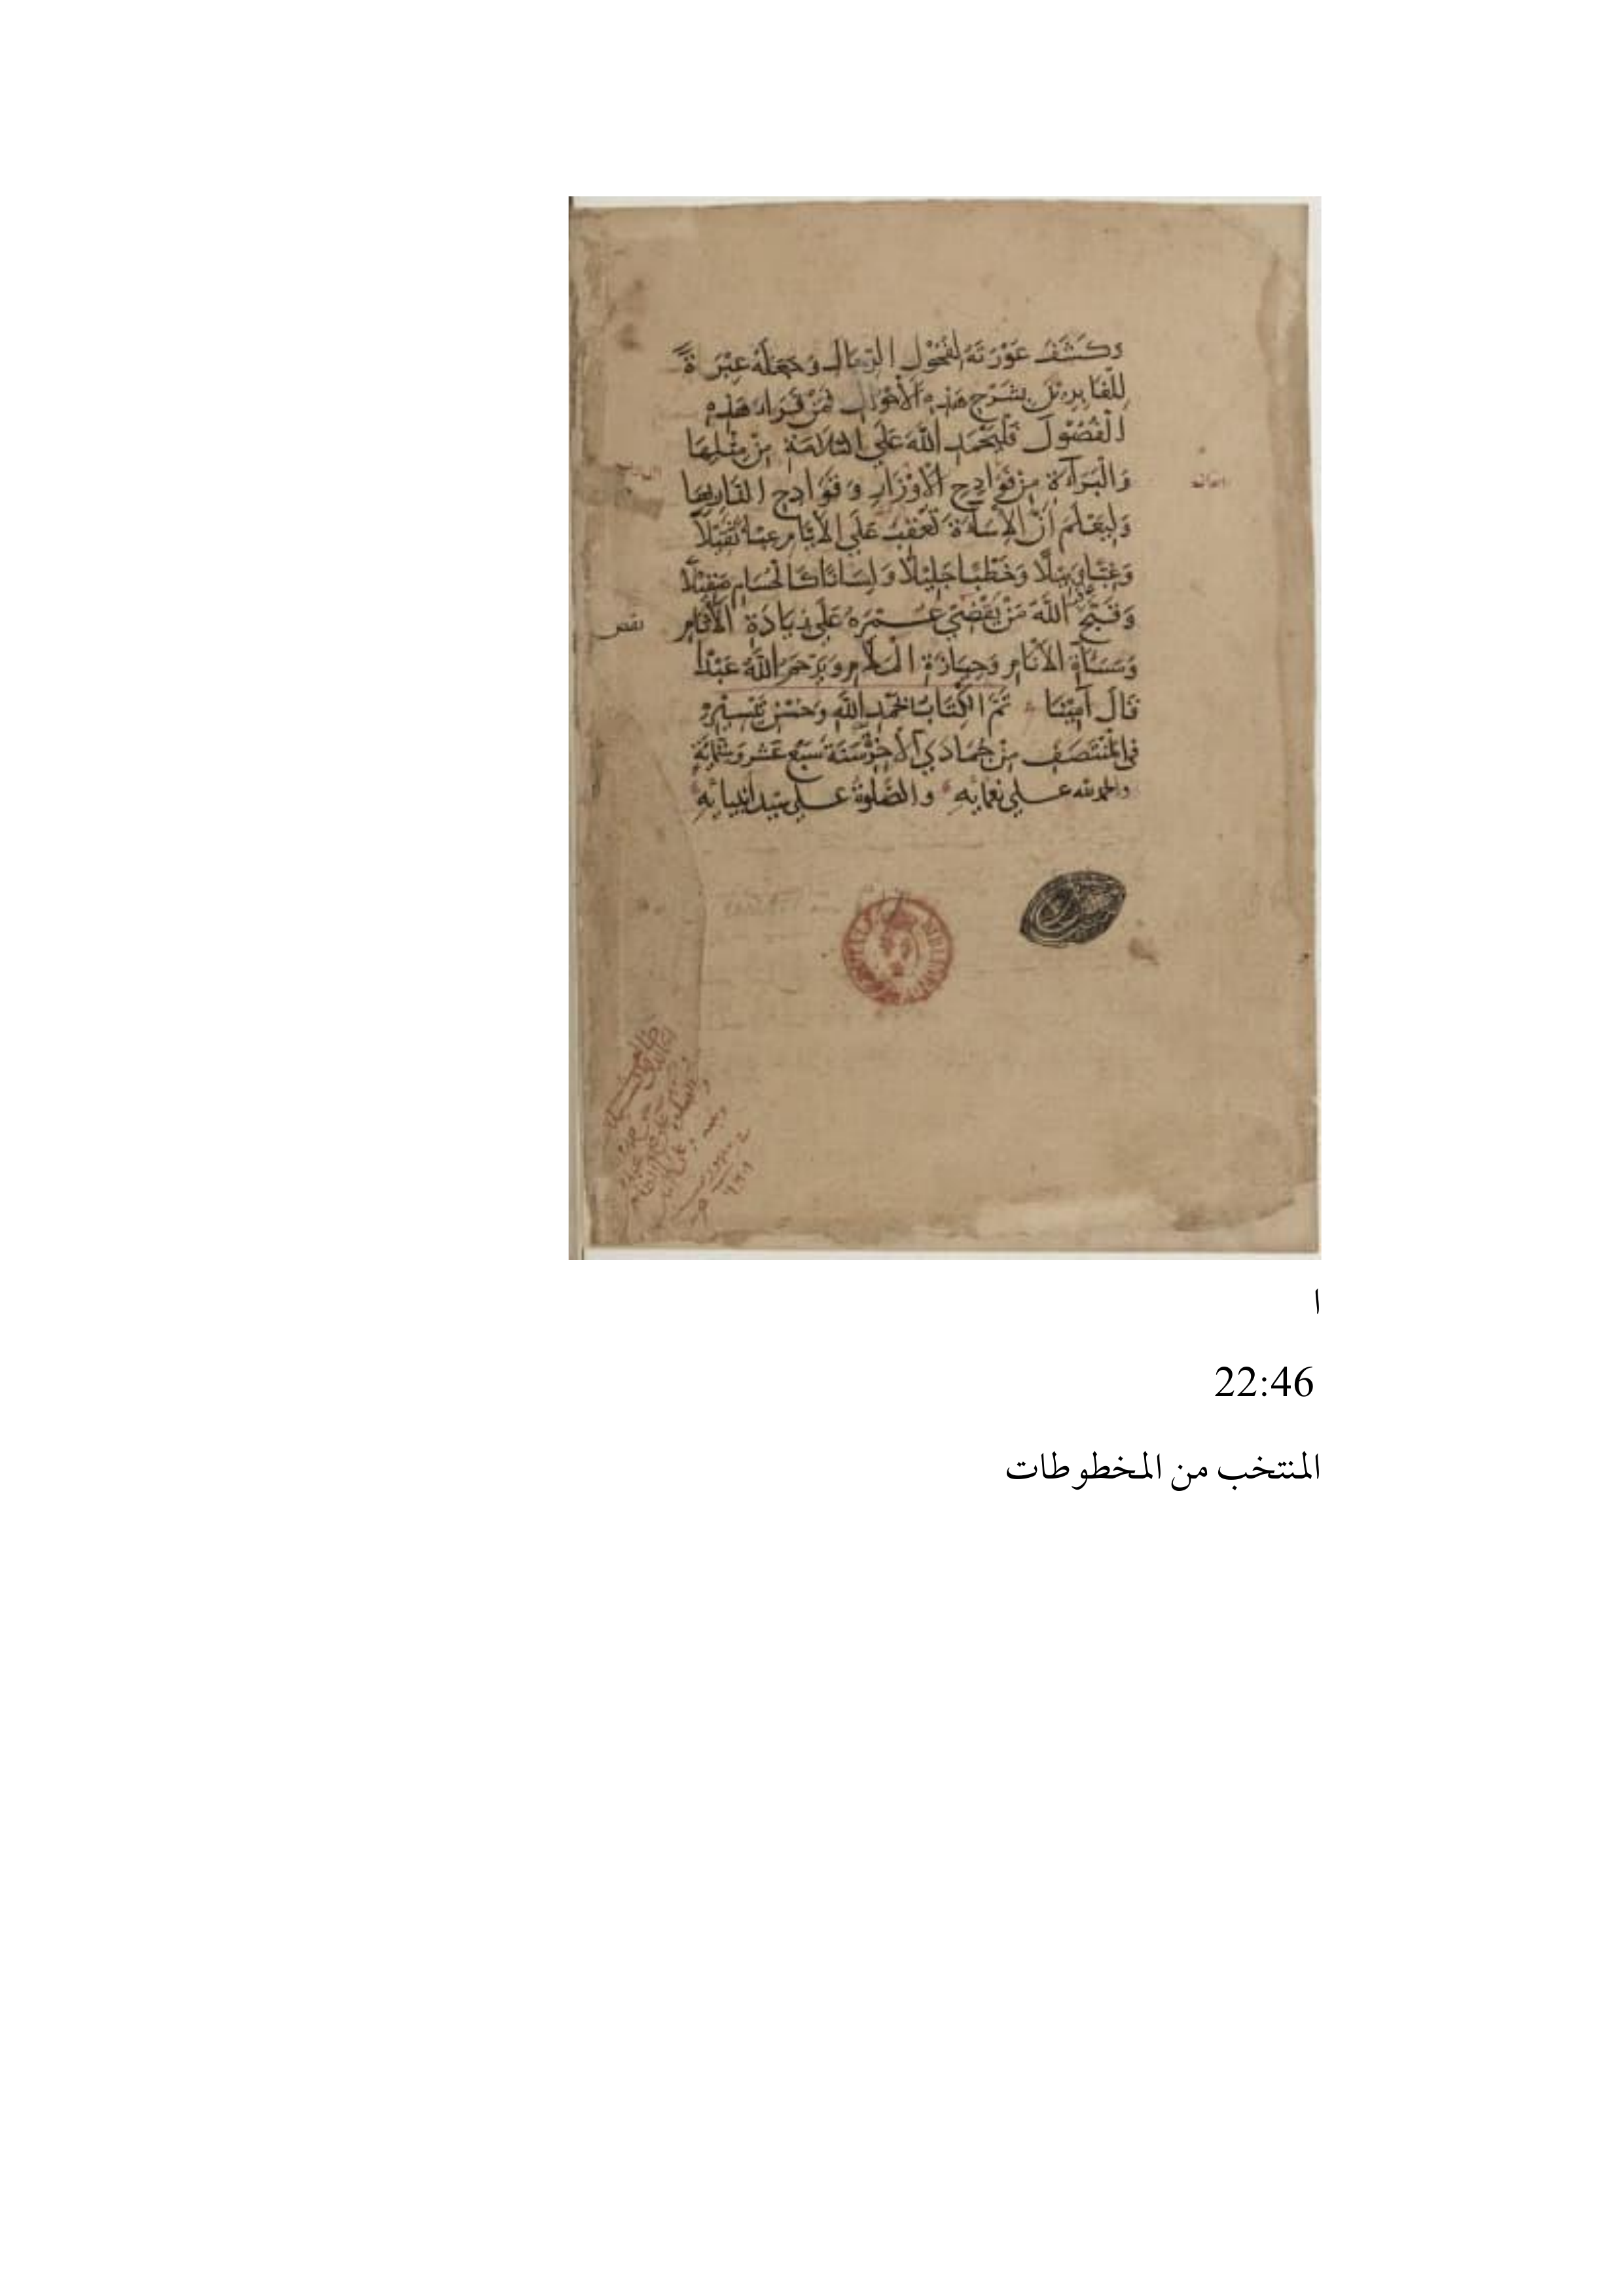 وكَشَفَ عَوْرَتَهُ لفُحُوْلِ الرِّجَالِ وَجَعَلَهُ عِبْرَةً
لِلْغَابِرِيْنَ بِشَرْحِ هَذِهِ الأَحْوَالِ فَمَنْ قَرَاَ هَذِهِ
الْفُصُوْلَ فَلْيَحْمَدِ اللّٰهَ عَلَى السَّلَامَةِ مِنْ مِثْلِهَا
وَالْبَرَآءَةِ مِنْ فَوَادِحِ الأَوْزَارِ وَقَوَادِحِ
وَلْيَعْلَمْ أَنَّ الإِسَآءَةَ تُعْقِبُ عَلَى الأَيَّامِ عِبْأً ثَقِيْلًا
وَغِبًّا وَبِيْلًا وَخَطْبًا جَلِيْلًا وَلِسَانًا كَالحُسَامِ صَقِيْلًا
وَقَبَّحَ اللّٰهُ مَنْ يَقْضِي عُمْرَهُ عَلَى زِيَادَةِ الآثَامِ
نقص
وَمَسَآءَةِ الأَنَامِ وَحِيَازَةِ الْمَلَامِ وَيَرْحَمُ اللّٰهُ عَبْدًا
قَالَ آمِيْنَا تَمَّ الْكِتَابُ بِحَمْدِ اللّٰهِ وَحُسْنِ تَيْسِيْرِهِ
فِي الْمُنْتَصَفِ مِنْ جُمَادَي الأُخْرَى سَنَةَ سَبْعَ عَشْرَ وَسِتِّمَائَةِ
والحمد لله على نعمائه والصلوة على سيد انبيائه
ا
22:46
المنتخب من المخطوطات